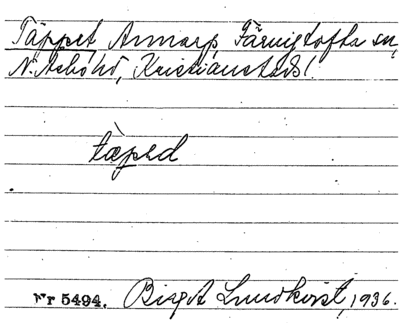 Täppet, Annarp, Färingtofta sn,
N. Åsbo hd, Kristianstads l.
tæ̀pəd
Nr 5494. Birgit Lundkvist, 1936.